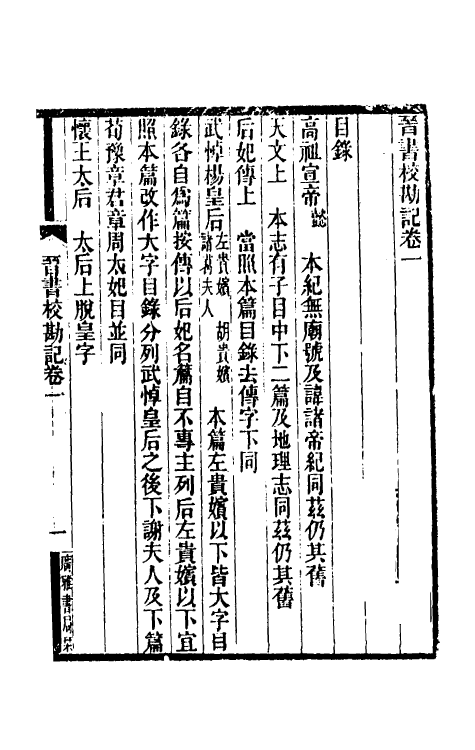 晉書校勘記卷一
目錄
高祖宣帝懿 本紀無廟號及諱諸帝紀同茲仍其舊
天文上 本志有子目中下二篇及地理志同茲仍其舊
后妃傳上 當照本篇目錄去傳字下同
武悼楊皇后左貴嬪 胡貴嬪 諸葛夫人 本篇左貴嬪以下皆大字目
錄各自爲篇按傳以后妃名篇自不專主列后左貴嬪以下宜
照本篇改作大字目錄分列武悼皇后之後下謝夫人及下篇
荀豫章君章周太妃目並同
懷王太后 太后上脫皇字
晉書校勘記卷一
一
廣雅書局栞